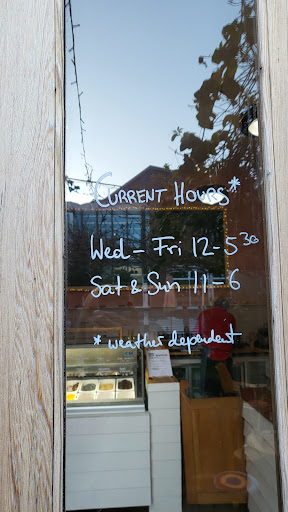 CURRENT HOURS*
Wed - Fri 12-5³⁰
Sat & Sun 11-6
*weather dependent